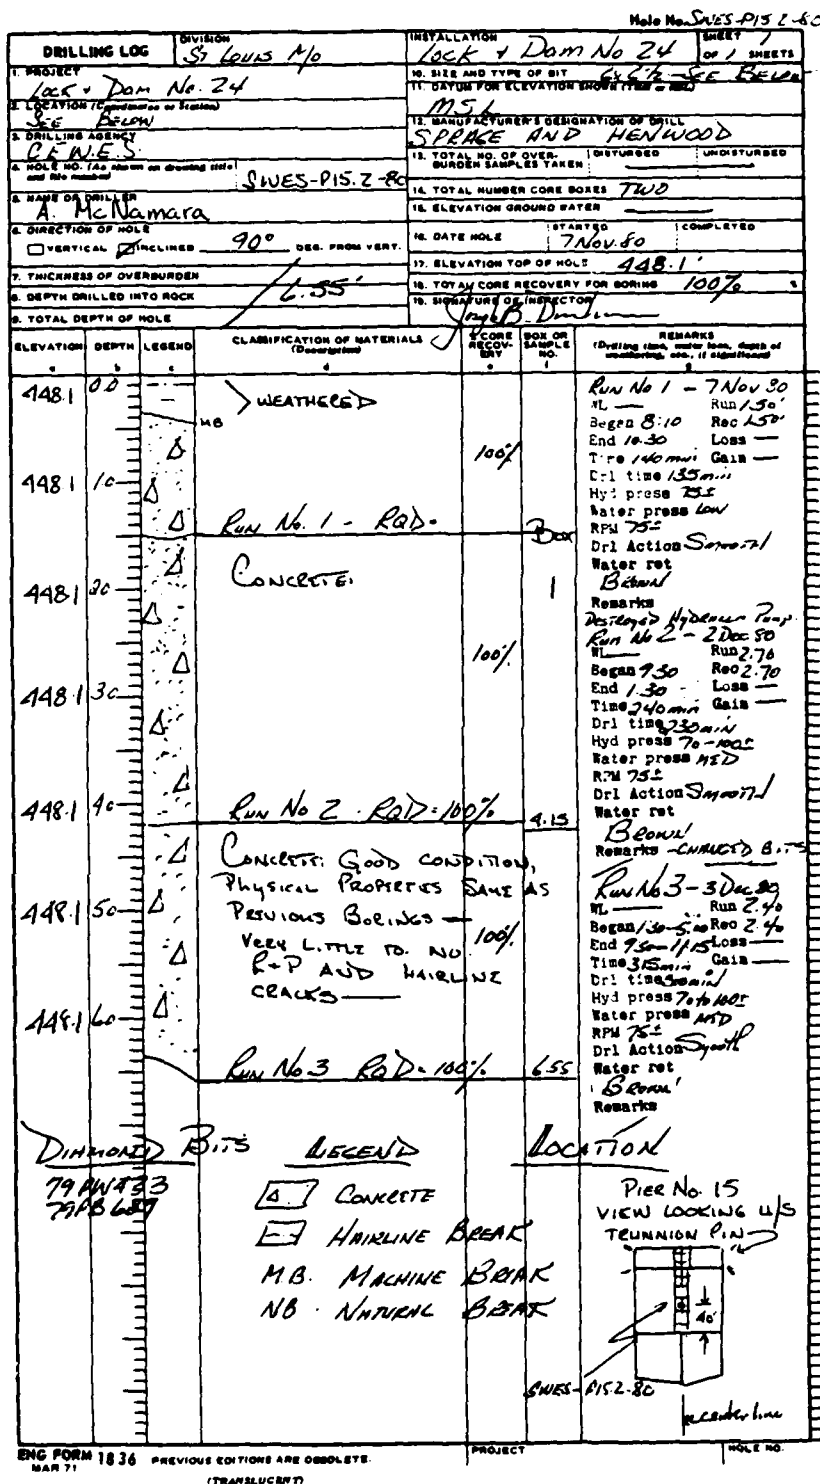 Hole No. SWES-P15.2-80
DRILLING LOG
DIVISION
St Louis Mo
INSTALLATION
Lock + Dam No 24
SHEET 1
OF 1 SHEETS
1. PROJECT
Lock + Dam No. 24
2. LOCATION (Coordinates or Station)
SEE BELOW
3. DRILLING AGENCY
C.E.W.E.S.
4. HOLE NO. (As shown on drawing title and file number)
SWES-P15.2-80
5. NAME OF DRILLER
A. McNamara
6. DIRECTION OF HOLE
VERTICAL INCLINED 90° DEG. FROM VERT.
7. THICKNESS OF OVERBURDEN
8. DEPTH DRILLED INTO ROCK
6.55'
9. TOTAL DEPTH OF HOLE
10. SIZE AND TYPE OF BIT SEE BELOW
11. DATUM FOR ELEVATION SHOWN (TBM or MSL)
MSL
12. MANUFACTURER'S DESIGNATION OF DRILL
SPRAGE AND HENWOOD
13. TOTAL NO. OF OVERBURDEN SAMPLES TAKEN
DISTURBED
UNDISTURBED
14. TOTAL NUMBER CORE BOXES TWO
15. ELEVATION GROUND WATER
16. DATE HOLE
STARTED
7 NOV. 80
COMPLETED
17. ELEVATION TOP OF HOLE 448.1'
18. TOTAL CORE RECOVERY FOR BORING 100% %
19. SIGNATURE OF INSPECTOR
ELEVATION
a
DEPTH
b
LEGEND
c
CLASSIFICATION OF MATERIALS
(Description)
d
% CORE RECOVERY
e
BOX OR SAMPLE NO.
f
REMARKS
(Drilling time, water loss, depth of weathering, etc., if significant)
g
448.1 0.0
WEATHERED
MB
100%
448.1 1.0
Run No. 1 - RQD-
Box
1
448.1 2.0
CONCRETE:
100%
448.1 3.0
448.1 4.0
Run No 2 - RQD = 100%
4.15
CONCRETE: GOOD CONDITION,
PHYSICAL PROPERTIES SAME AS
448.1 5.0
PREVIOUS BORINGS —
100%
VERY LITTLE TO NO
R+P AND HAIRLINE
CRACKS —
448.1 6.0
Run No. 3 RQD = 100%
6.55
Run No 1 - 7 Nov 80
WL — Run 1.50'
Began 8:10 Rec 1.50'
End 10:30 Loss —
Time 140 min Gain —
Drl time 135 min
Hyd press 75±
Water press LOW
RPM 75±
Drl Action Smooth
Water ret
Brown
Remarks
Destroyed Hydraulic Pump
Run No 2 - 2 Dec 80
WL — Run 2.70
Began 9:30 Rec 2.70
End 1:30 Loss —
Time 240 min Gain —
Drl time 230 min
Hyd press 70-100±
Water press MED
RPM 75±
Drl Action Smooth
Water ret
BROWN
Remarks - CHANGED BITS
Run No 3 - 3 Dec 80
WL — Run 2.40
Began 1:30-5:00 Rec 2.40
End 9:30-11:15 Loss —
Time 315 min Gain —
Drl time
Hyd press 70 to 100±
Water press MED
RPM 75±
Drl Action Smooth
Water ret
BROWN
Remarks
DIAMOND BITS
LEGEND
CONCRETE
HAIRLINE BREAK
M.B. MACHINE BREAK
NB - NATURAL BREAK
LOCATION
PIER No. 15
VIEW LOOKING U/S
TRUNNION PIN
40'
SWES-P15.2-80
center line
ENG FORM 1836
MAR 71
PREVIOUS EDITIONS ARE OBSOLETE.
(TRANSLUCENT)
PROJECT
HOLE NO.